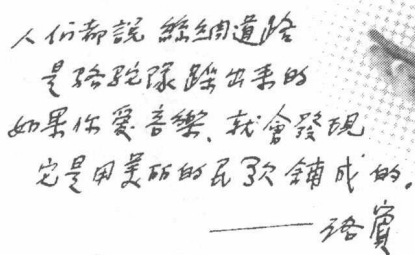 人们都說絲綢道路
是骆駝隊踩出来的
如果你愛音樂、就會發現
它是用美丽的民歌鋪成的。
——洛賓